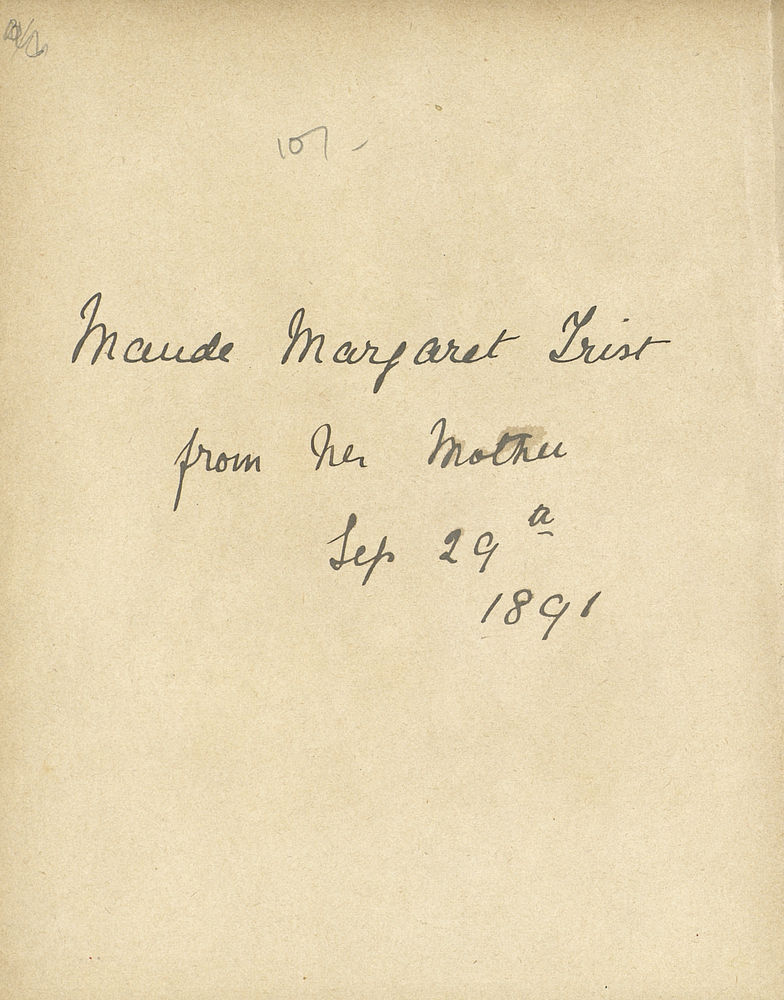 10/-
Maude Margaret Trist
from her Mother
Sep 29th
1891